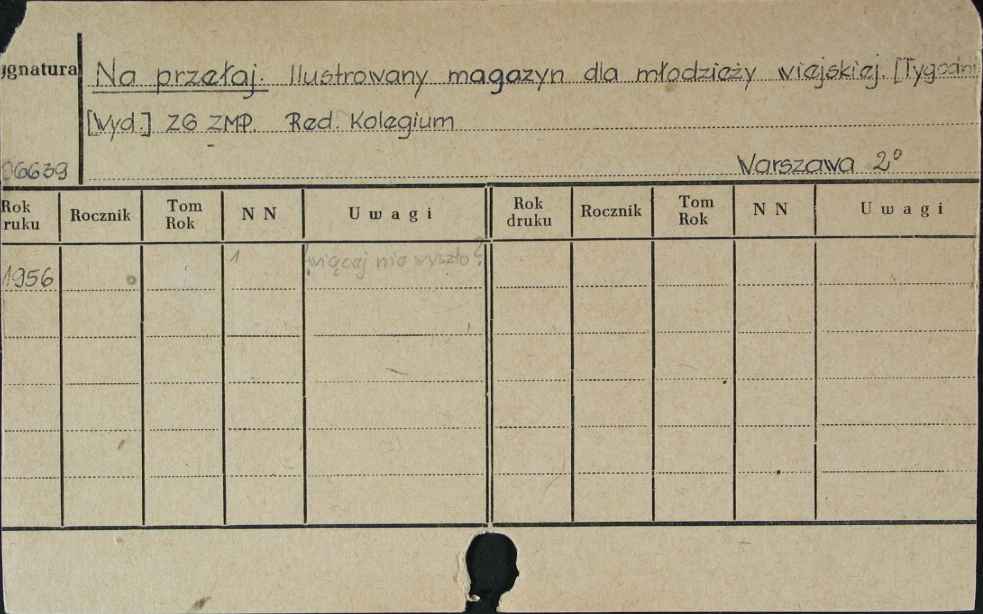 ygnatura Na przełaj. Ilustrowany magazyn dla młodzieży wiejskiej. [Tygodni
[Wyd.] ZG ZMP. Red. Kolegium
06639 Warszawa 2°
Rok ruku Rocznik Tom Rok N N Uwagi Rok druku Rocznik Tom Rok N N Uwagi
1956 1 więcej nie wyszło?